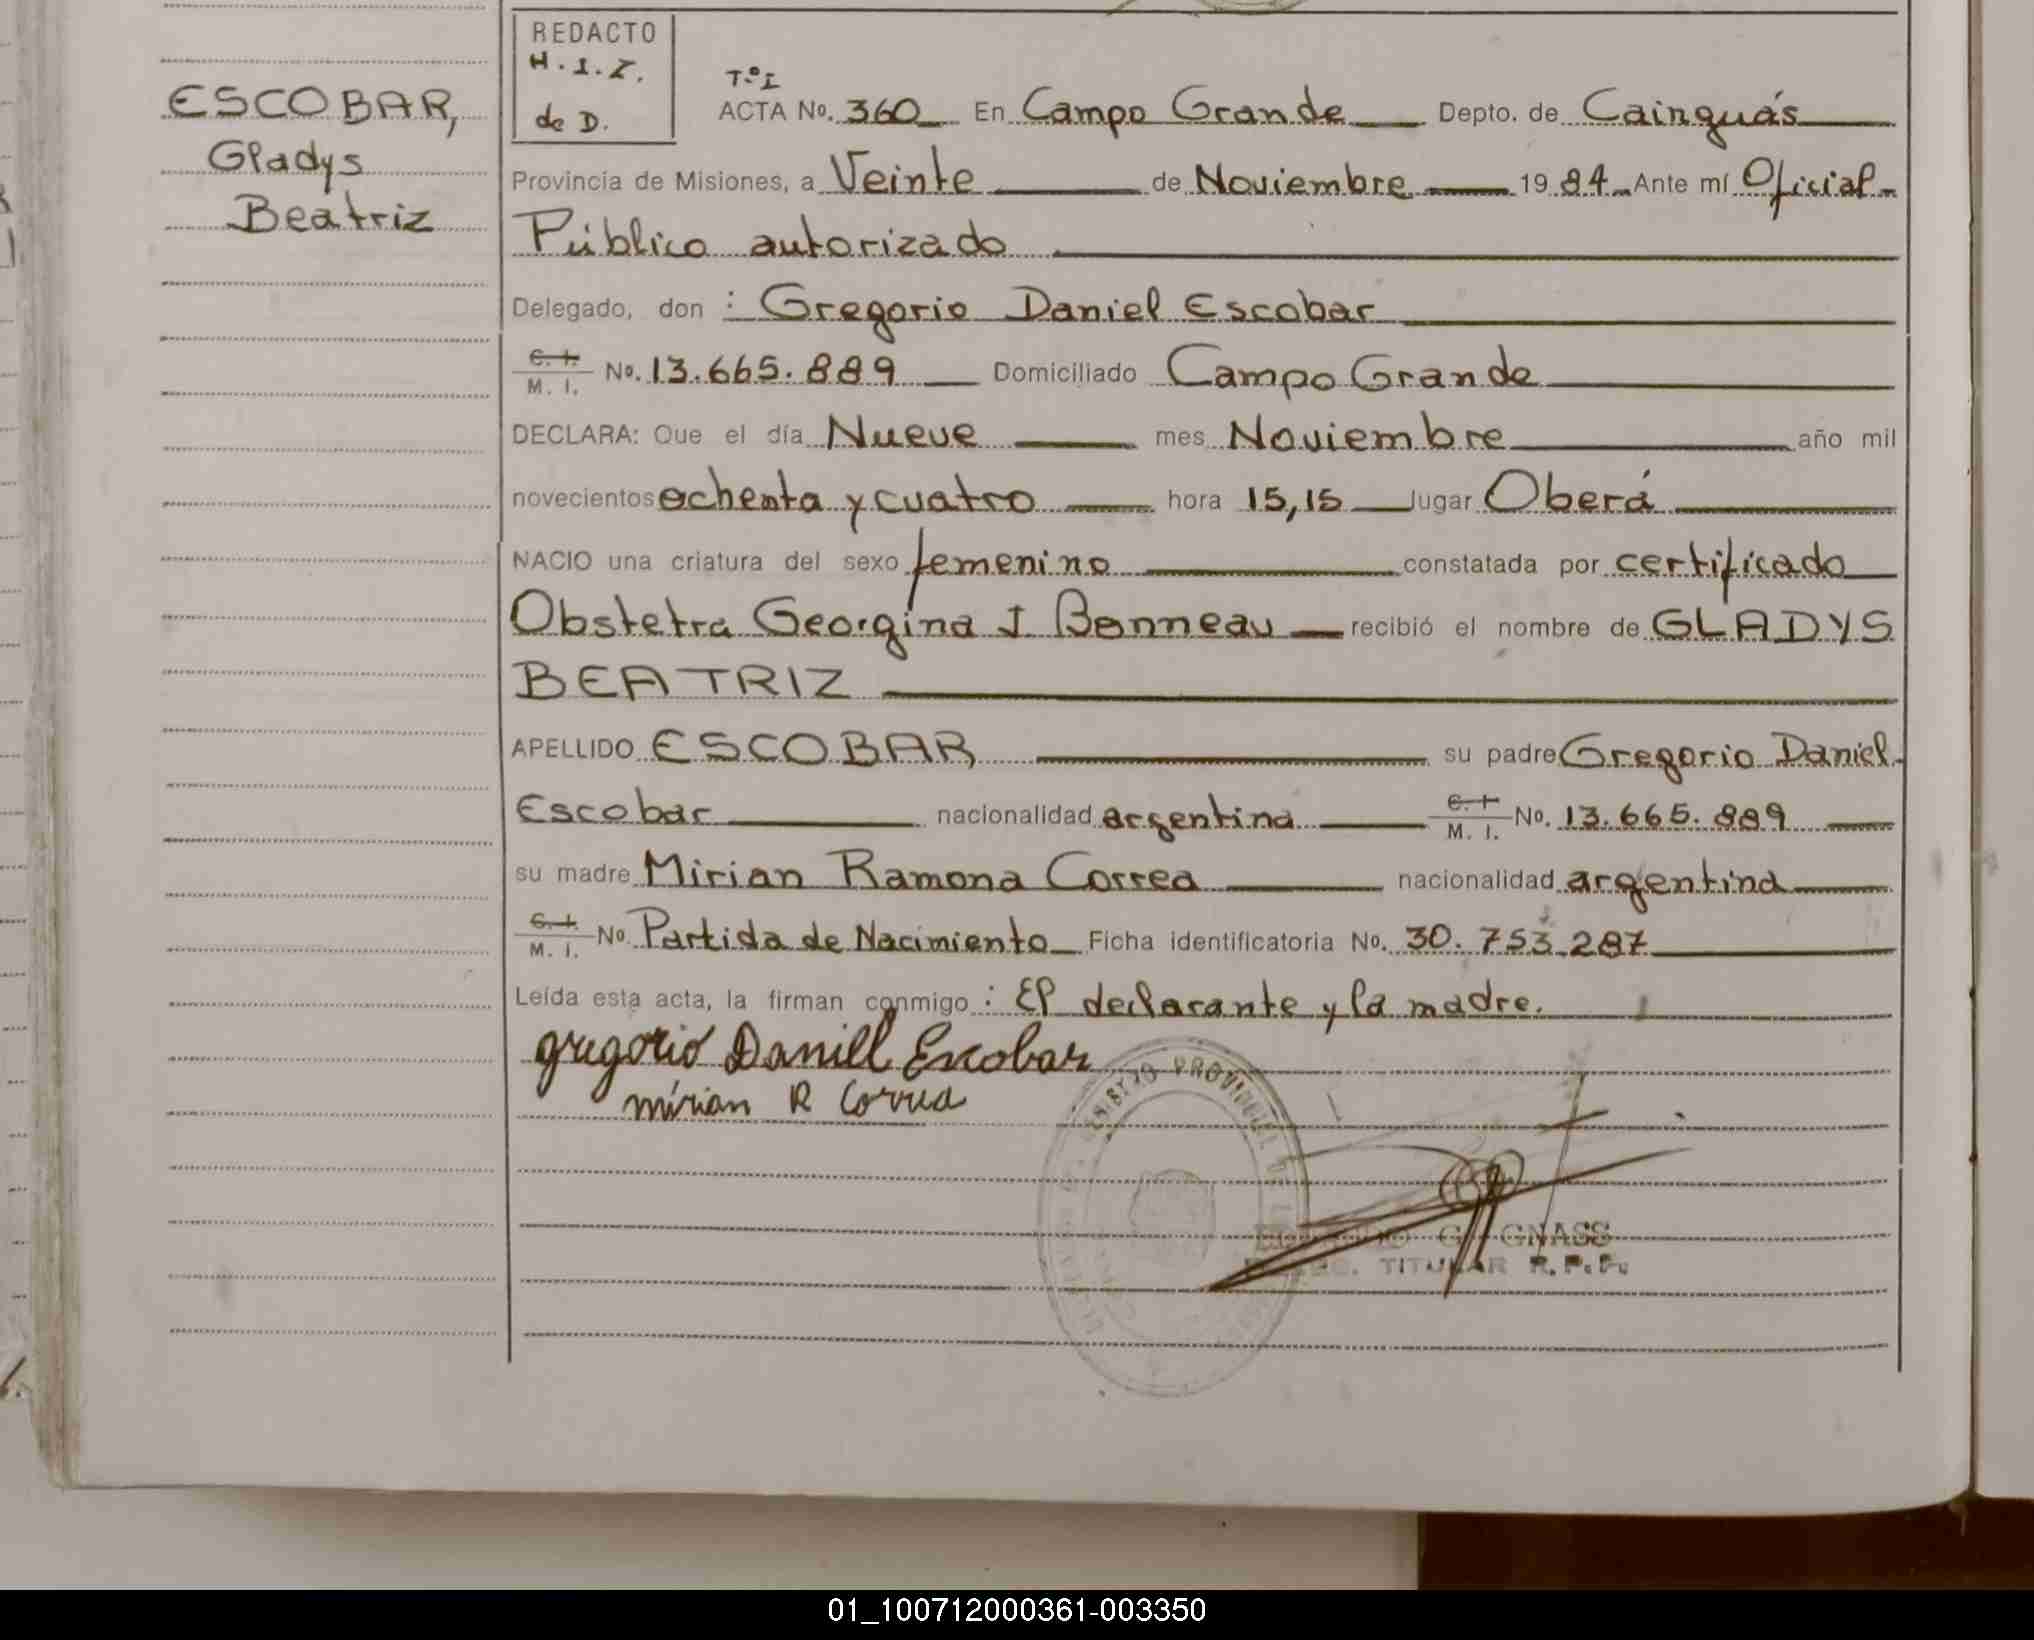 REDACTO
H. I. Z.
de D.
ESCOBAR,
Gladys
Beatriz
T.º I
ACTA No. 360 En Campo Grande Depto. de Cainguás
Provincia de Misiones, a Veinte de Noviembre 19 84 Ante mí Oficial
Público autorizado
Delegado, don : Gregorio Daniel Escobar
C. I. M. I. No. 13.665.889 Domiciliado Campo Grande
DECLARA: Que el día Nueve mes Noviembre año mil
novecientos ochenta y cuatro hora 15,15 lugar Oberá
NACIO una criatura del sexo femenino constatada por certificado
Obstetra Georgina J. Bonneau recibió el nombre de GLADYS
BEATRIZ
APELLIDO ESCOBAR su padre Gregorio Daniel
Escobar nacionalidad argentina C. I. M. I. No. 13.665.889
su madre Mirian Ramona Correa nacionalidad argentina
C. I. M. I. No. Partida de Nacimiento Ficha identificatoria No. 30.753.287
Leída esta acta, la firman conmigo : El declarante y la madre.
gregorio Daniell Escobar
mirian R Correa
REGISTRO PROVINCIAL DE
GNASS
TITULAR R.P.P.
01_100712000361-003350